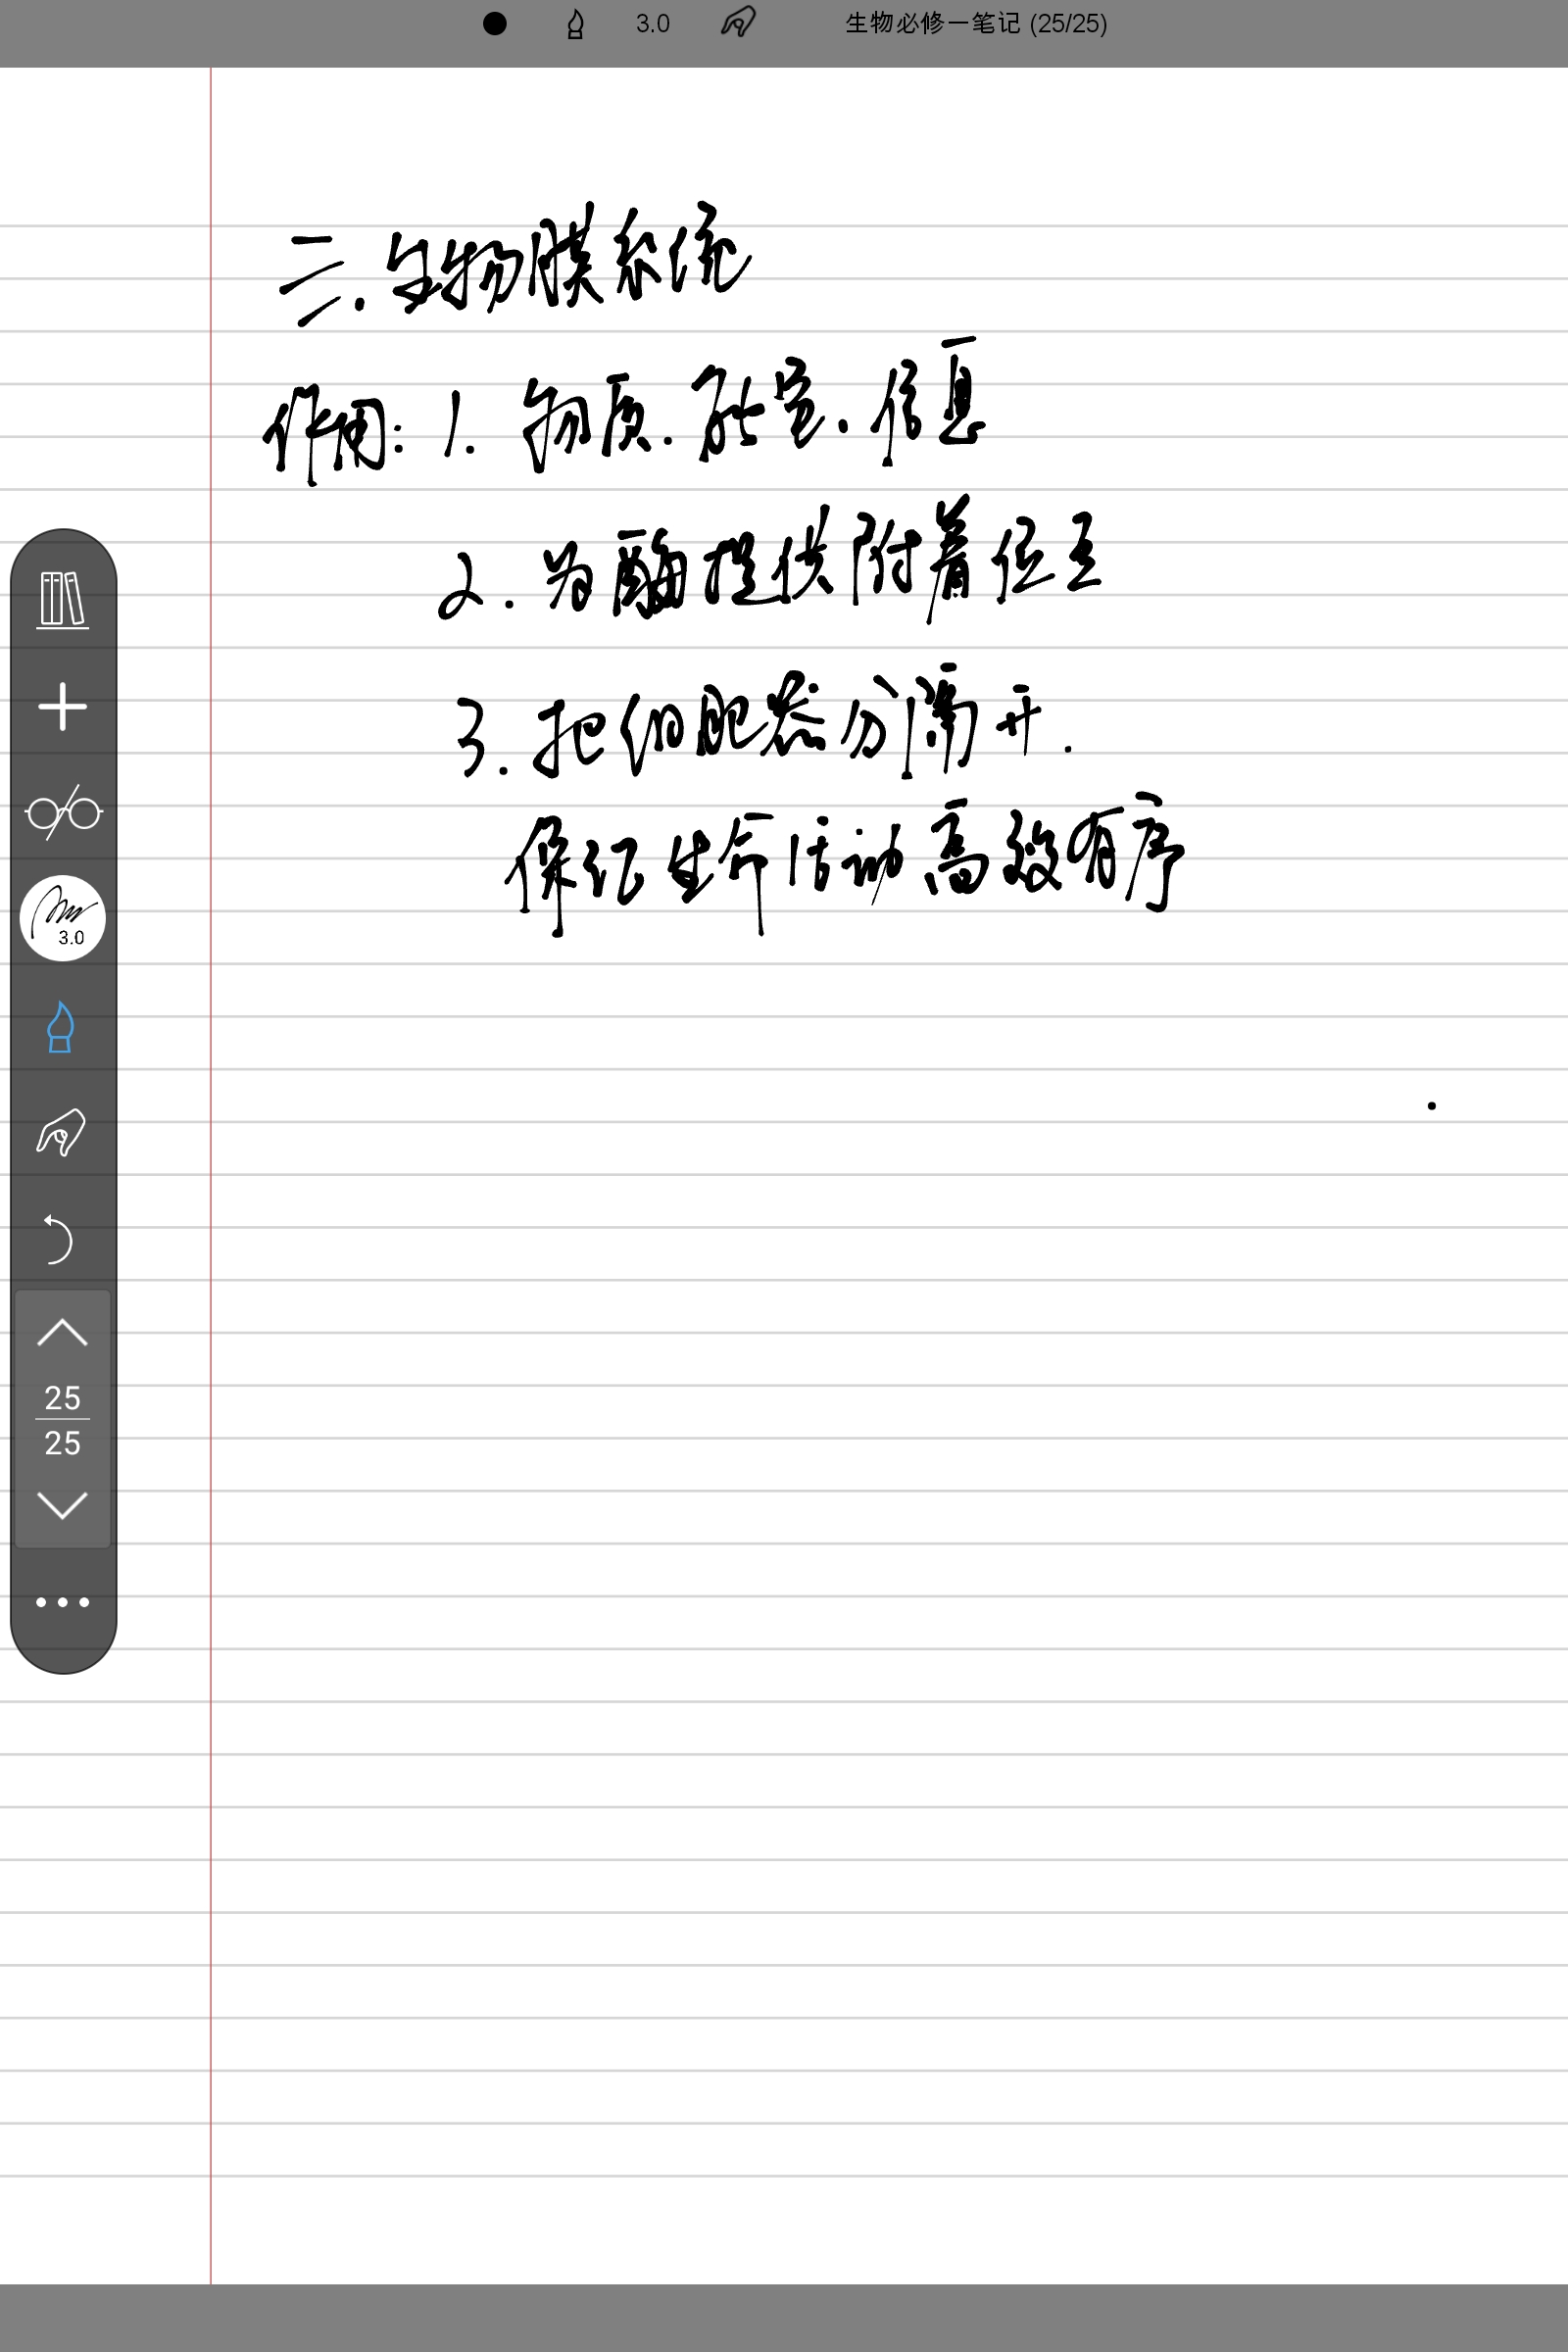 3.0 生物必修一笔记 (25/25)
三.生物膜系统
作用:1.物质.能量.信息
2.为酶提供附着位点
3.把细胞器分隔开.
保证生命活动高效有序
3.0
25
25